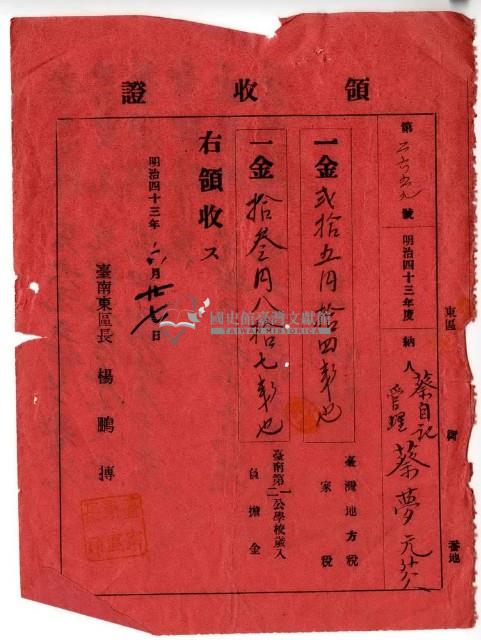 領收證
東區 街 番地
第 號 明治四十三年度 納人 蔡自記
管理 蔡夢元外
一金貳拾五円拾四彰也
臺灣地方稅
家稅
一金拾叁円八拾七彰也
臺南第一二公學校歲入
負擔金
右領收ス
明治四十三年六月廿七日
臺南東區長 楊鵬摶
國史館臺灣文獻館
TAIWAN HISTORICA